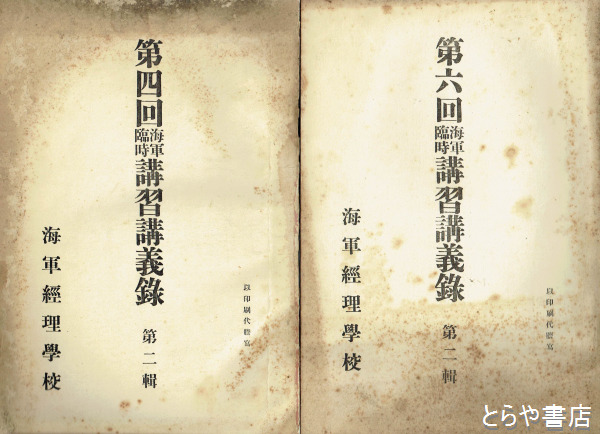 第四回海軍臨時講習講義録 第二輯
海軍經理學校
以印刷代謄寫
第六回海軍臨時講習講義録 第二輯
海軍經理學校
以印刷代謄寫
とらや書店